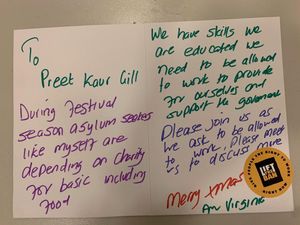 To
Preet Kaur Gill
During Festival
season asylum seekers
like myself are
depending on charity
for basic including
food
We have skills we
are educated we
need to be allowed
to work to provide
for ourselves and
support the government
Please join us as
we ask to be allowed
to work, Please meet
us to discuss more
Merry Xmas
LIFT
BAN